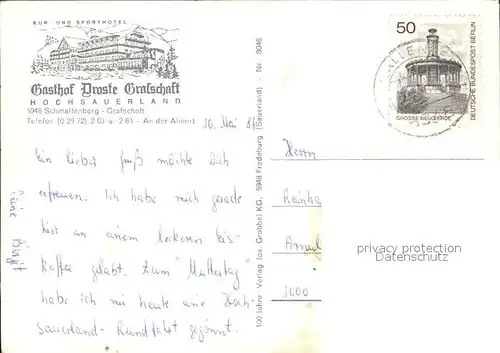 KUR- UND SPORTHOTEL
Gasthof Droste Grafschaft
HOCHSAUERLAND
5948 Schmallenberg - Grafschaft
Telefon (0 29 72) 2 63 u. 2 61 - An der Almert
10. Mai 81
Ein lieber Gruß möchte Dich
erfreuen. Ich habe mich gerade
hier an einem leckeren Eis-
kaffee gelabt. Zum "Muttertag"
habe ich mir heute eine Hoch-
sauerland-Rundfahrt gegönnt.
Deine Birgit
100 Jahre Verlag Jos. Grobbel KG, 5948 Fredeburg (Sauerland) - Nr. 8046
50
GROSSE NEUGIERDE
DEUTSCHE BUNDESPOST BERLIN
Herrn
Reinha
privacy protection
Datenschutz